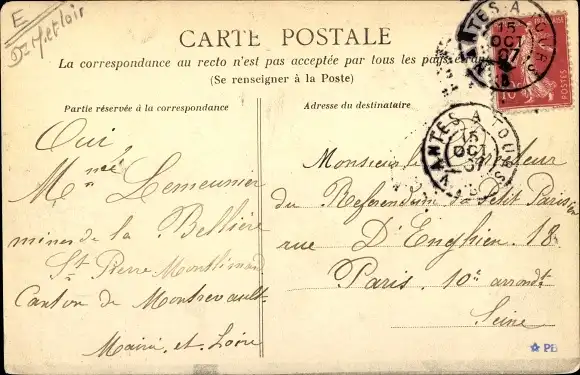 E
Dt M. et Loir
CARTE POSTALE
La correspondance au recto n'est pas acceptée par tous les pays étrangers
(Se renseigner à la Poste)
Partie réservée à la correspondance
Adresse du destinataire
Oui
Lemeunier
mines de la Bellière
St Pierre Montlimard
Canton de Montrevault
Maine et Loire
Monsieur le
du Referendum du Petit Parisien
rue D'Enghien. 18.
Paris. 10e arrondt
Seine
NANTES A TOURS
15
OCT
07
POSTES
10
NANTES A TOURS
15
OCT
07
PB